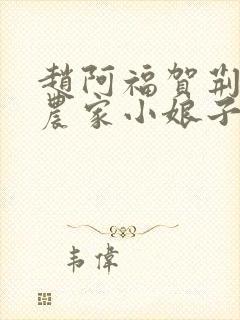 趙阿福賀荊
農家小娘子
韋偉